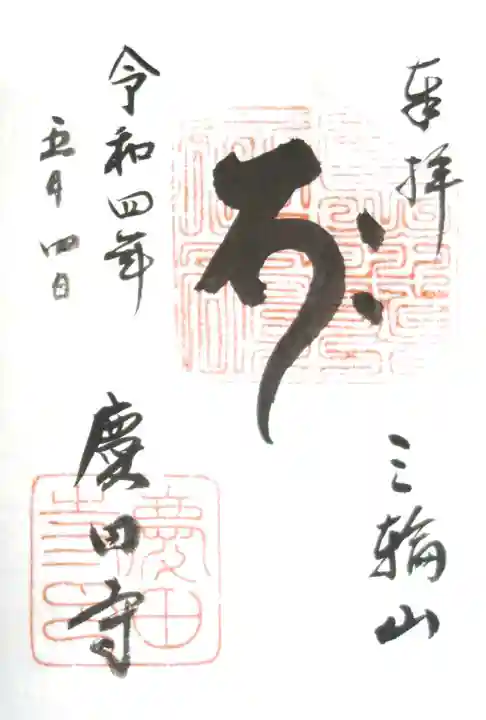 奉拝
三輪山
𑖥𑖾
令和四年
五月四日
慶田寺
慶田
寺印